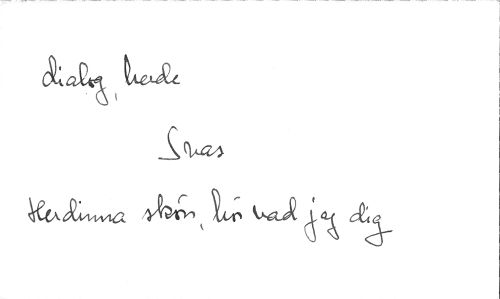 dialog, herde
Svas
Herdinna skön, hör vad jag dig